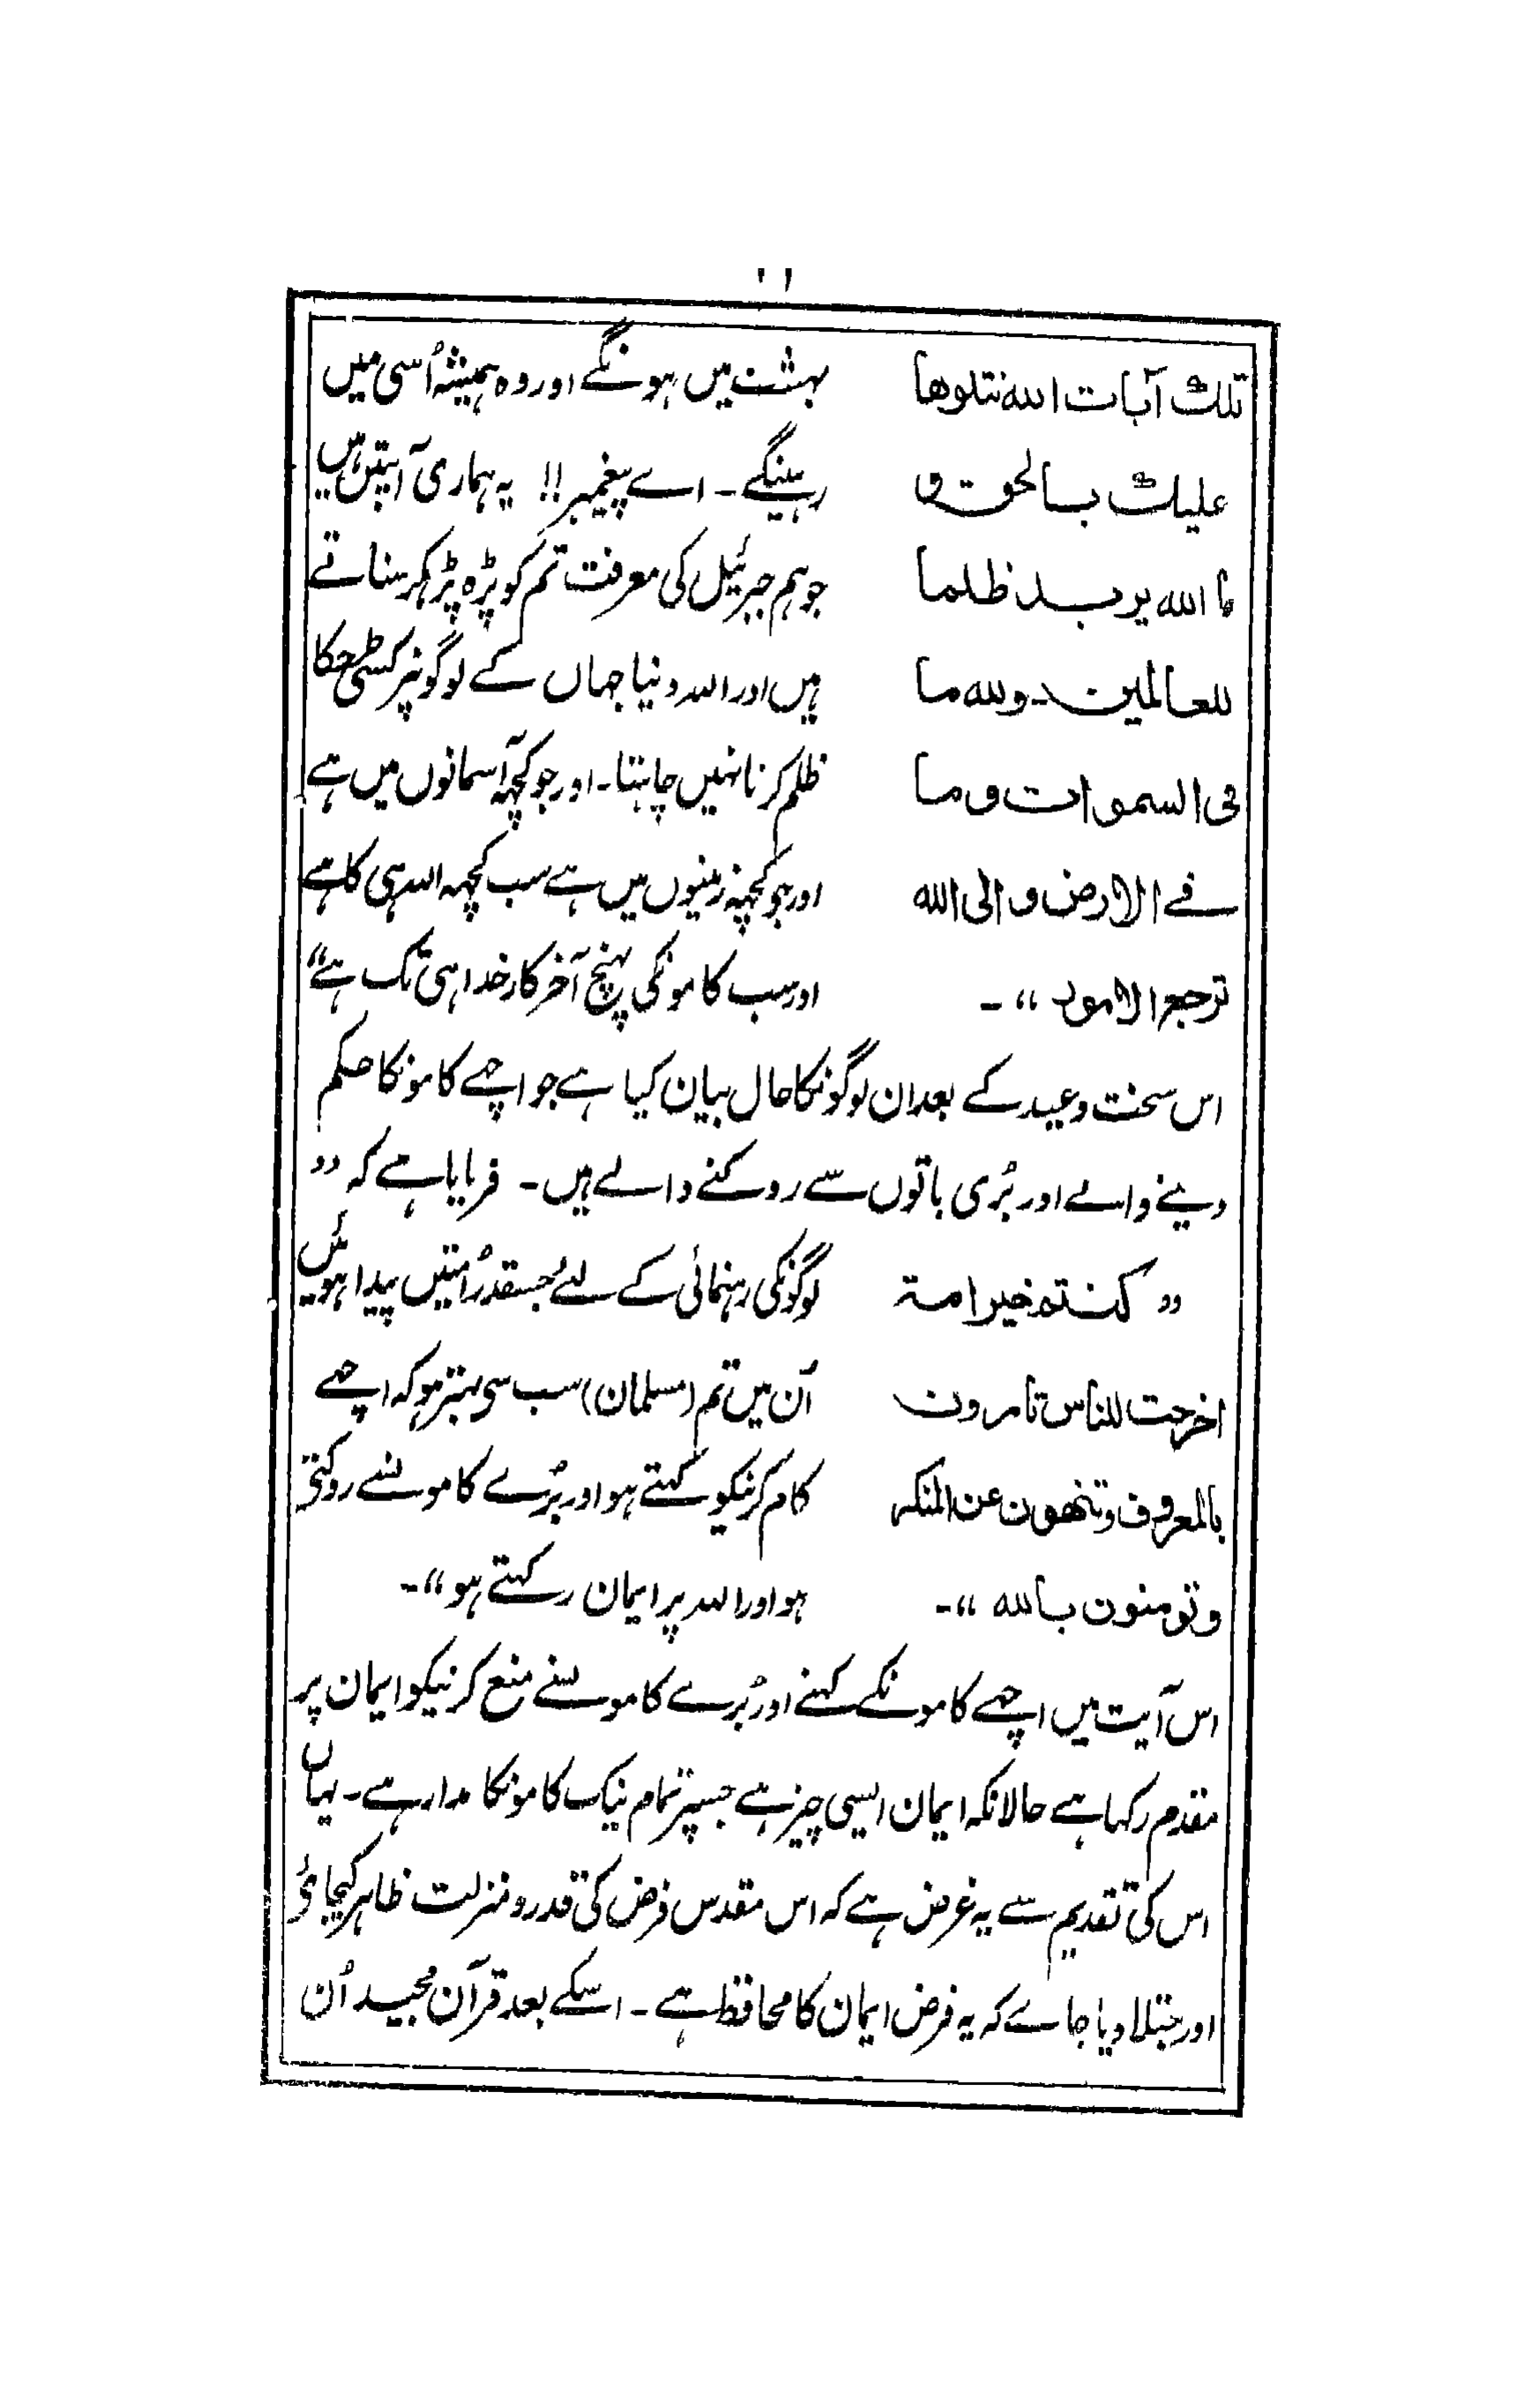 ۱۱
تلك آیات الله نتلوها بہشت میں ہونگے اور وہ ہمیشہ اُسی میں
علیك بالحق و رہینگے ۔ اے پیغمبر !! یہ ہماری آیتیں ہیں
ما الله یرید ظلما جو ہم جبرئیل کی معرفت تم کو پڑہ پڑہکر سناتے
للعالمین ۔ ولله ما ہیں اور اللہ دنیا جہاں کے لوگونپر کسی طرحکا
فی السموات وما ظلم کرنا نہیں چاہتا ۔ اور جو کچہہ آسمانوں میں ہے
فے الارض و الی الله اور جو کچہہ زمینوں میں ہے سب کچہہ اللہ ہی کا ہے
ترجع الامور “ ۔ اور سب کامونکی پہنچ آخر کار خدا ہی تک ہے “
اس سخت وعید کے بعد ان لوگونکا حال بیان کیا ہے جو اچہے کامونکا حکم
دینے والے اور بُری باتوں سے روکنے والے ہیں ۔ فرمایا ہے کہ ”
” کنتم خیر امة لوگونکی رہنمائی کے لئے جسقدر اُمتیں پیدا ہوئیں
اخرجت للناس تامرون اُن میں تم (مسلمان) سب سی بہتر ہو کہ اچہے
بالمعروف وتنهون عن المنکر کام کرنیکو کہتے ہو اور بُرے کامونسے روکتی
وتومنون بالله “ ۔ ہو اور اللہ پر ایمان رکہتے ہو “ ۔
اس آیت میں اچہے کامونکے کہنے اور بُرے کامونسے منع کرنیکو ایمان پر
مقدم رکہا ہے حالانکہ ایمان ایسی چیز ہے جسپر تمام نیک کامونکا مدار ہے ۔ یہاں
اس کی تقدیم سے یہ غرض ہے کہ اس مقدس فرض کی قدر و منزلت ظاہر کیجائے
اور جتلا دیا جاے کہ یہ فرض ایمان کا محافظ ہے ۔ اسکے بعد قرآن مجید اُن